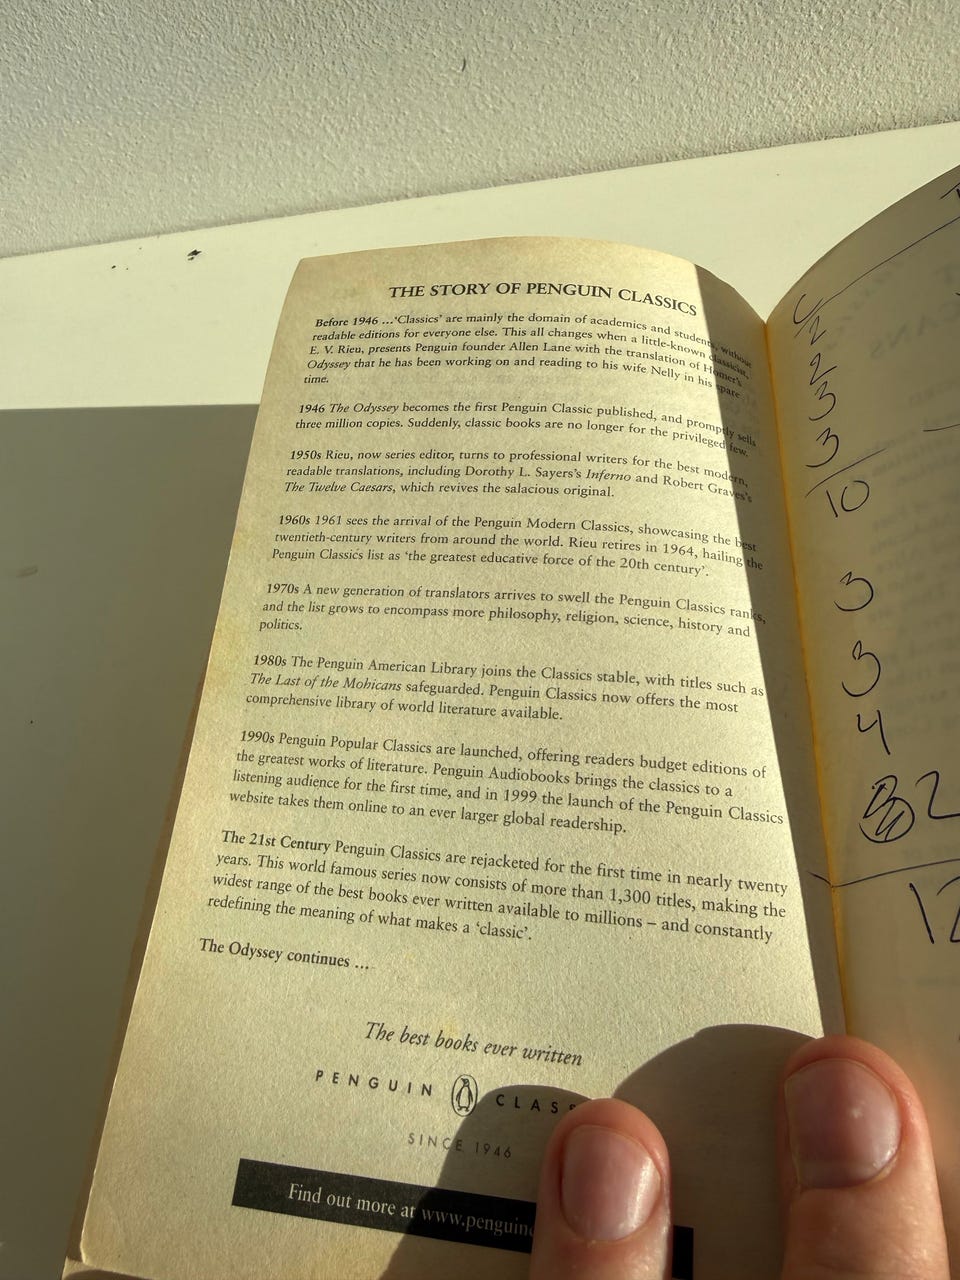 THE STORY OF PENGUIN CLASSICS
Before 1946 ...‘Classics’ are mainly the domain of academics and students, without
readable editions for everyone else. This all changes when a little-known classicist,
E. V. Rieu, presents Penguin founder Allen Lane with the translation of Homer’s
Odyssey that he has been working on and reading to his wife Nelly in his spare
time.
1946 The Odyssey becomes the first Penguin Classic published, and promptly sells
three million copies. Suddenly, classic books are no longer for the privileged few.
1950s Rieu, now series editor, turns to professional writers for the best modern,
readable translations, including Dorothy L. Sayers’s Inferno and Robert Graves’s
The Twelve Caesars, which revives the salacious original.
1960s 1961 sees the arrival of the Penguin Modern Classics, showcasing the best
twentieth-century writers from around the world. Rieu retires in 1964, hailing the
Penguin Classics list as ‘the greatest educative force of the 20th century’.
1970s A new generation of translators arrives to swell the Penguin Classics ranks,
and the list grows to encompass more philosophy, religion, science, history and
politics.
1980s The Penguin American Library joins the Classics stable, with titles such as
The Last of the Mohicans safeguarded. Penguin Classics now offers the most
comprehensive library of world literature available.
1990s Penguin Popular Classics are launched, offering readers budget editions of
the greatest works of literature. Penguin Audiobooks brings the classics to a
listening audience for the first time, and in 1999 the launch of the Penguin Classics
website takes them online to an ever larger global readership.
The 21st Century Penguin Classics are rejacketed for the first time in nearly twenty
years. This world famous series now consists of more than 1,300 titles, making the
widest range of the best books ever written available to millions – and constantly
redefining the meaning of what makes a ‘classic’.
The Odyssey continues ...
The best books ever written
PENGUIN CLASS
SINCE 1946
Find out more at www.penguin
2
2
3
3
10
3
3
4
2
12